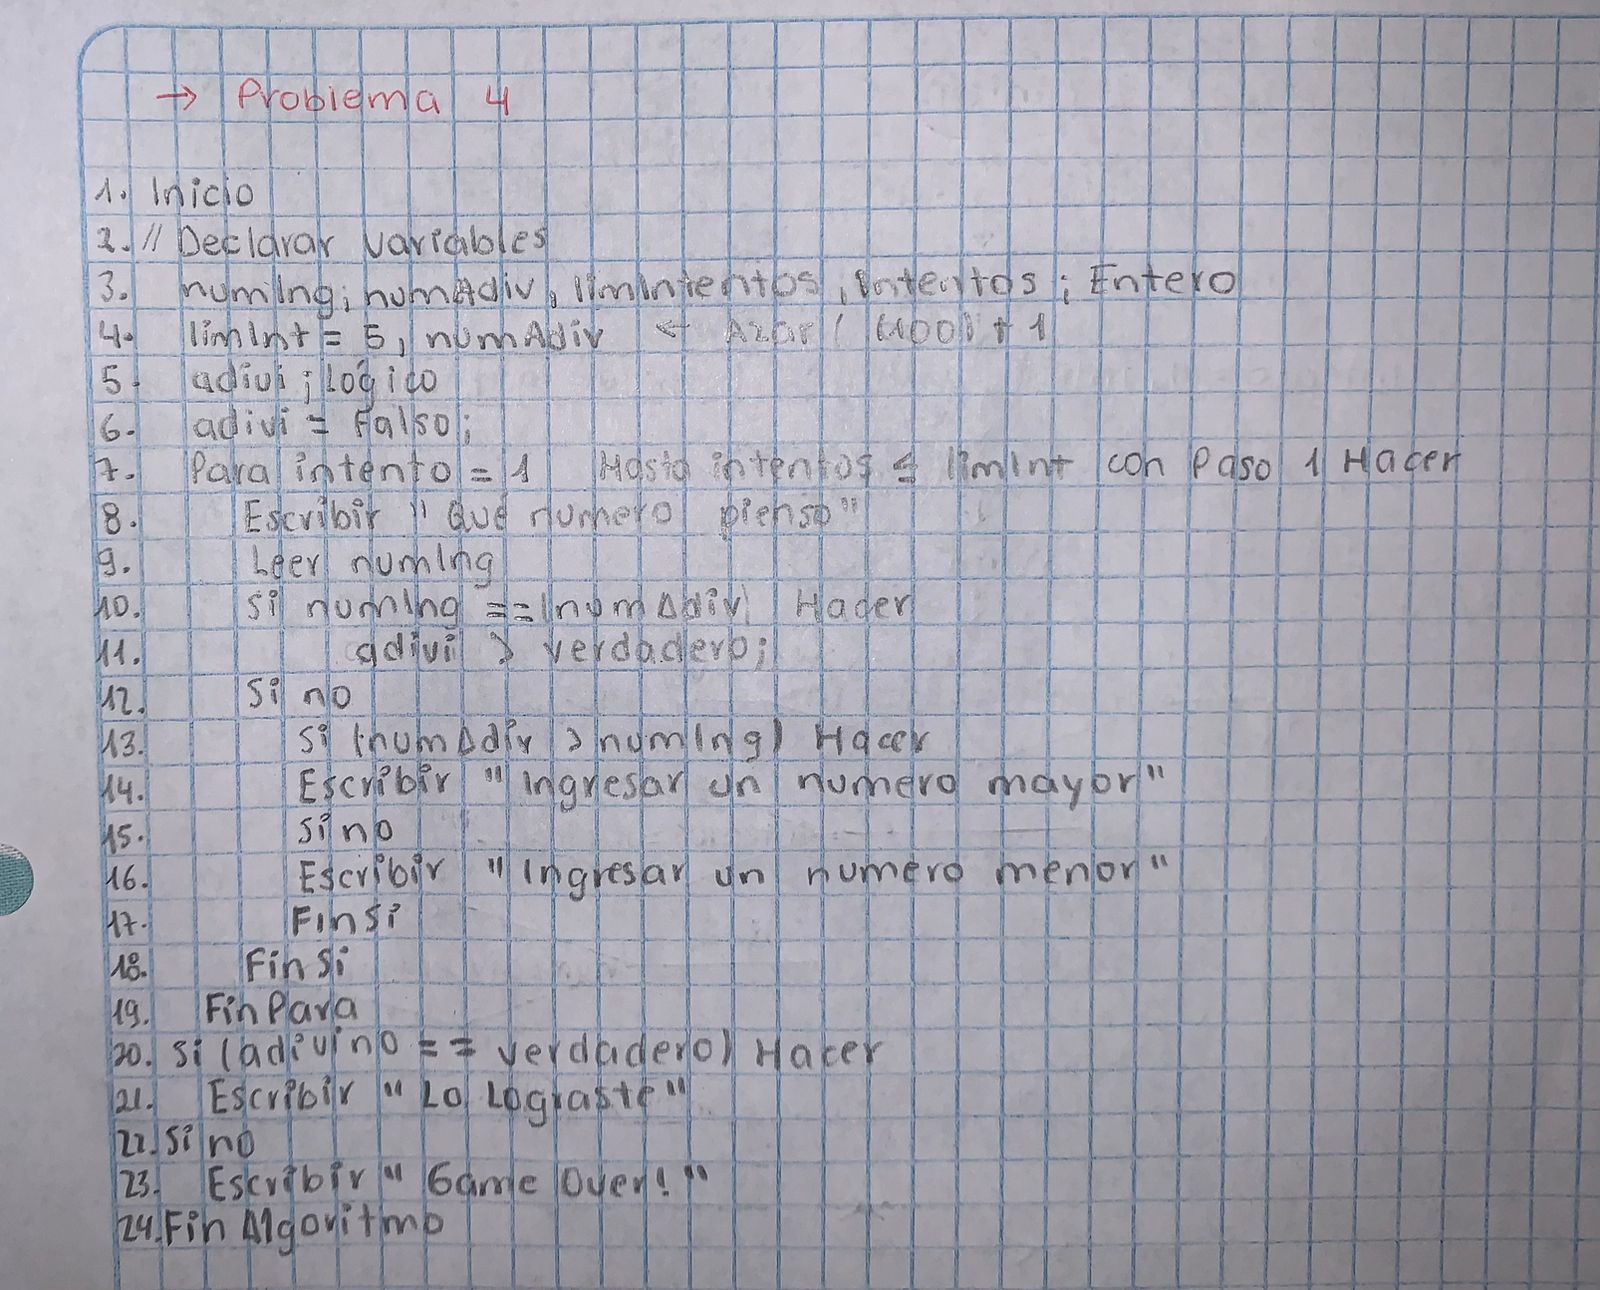 → Problema 4
1. Inicio
2. // Declarar variables
3. numIng; numAdiv, limIntentos, Intentos; Entero
4. limInt = 5, numAdiv ← Azar ( (100) + 1
5. adivi; lógico
6. adivi = Falso;
7. Para intento = 1 Hasta intentos ≤ limInt con Paso 1 Hacer
8. Escribir "Qué numero pienso"
9. Leer numIng
10. Si numIng == (numAdiv) Hacer
11. adivi > verdadero;
12. Si no
13. Si (numAdiv > numIng) Hacer
14. Escribir "Ingresar un numero mayor"
15. Si no
16. Escribir "Ingresar un numero menor"
17. FinSi
18. FinSi
19. FinPara
20. Si (adivino == verdadero) Hacer
21. Escribir "Lo Lograste"
22. Si no
23. Escribir "Game Over!"
24. Fin Algoritmo